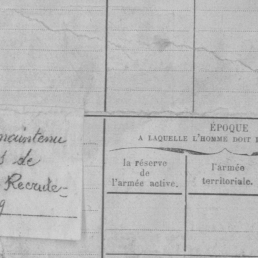 maintenu
de
Recrute-
ÉPOQUE
A LAQUELLE L'HOMME DOIT
la réserve
de
l'armée active.
l'armée
territoriale.